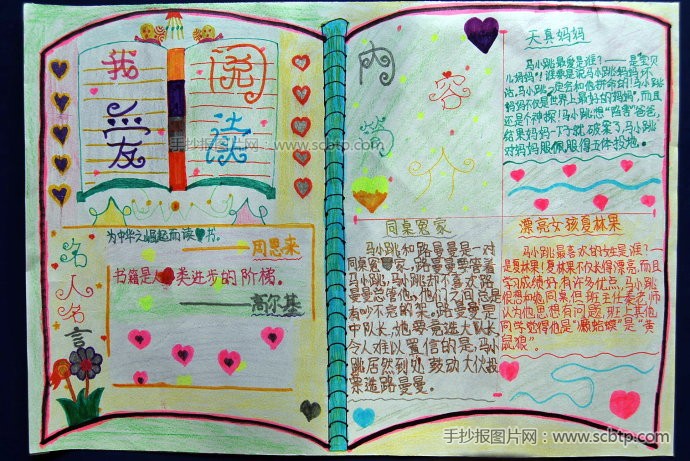 我爱
阅读
为中华之崛起而读书。
——周恩来
书籍是人类进步的阶梯。
——高尔基
名人名言
内容简介
天真妈妈
马小跳最爱是谁?——是"宝贝
儿妈妈"!谁要是说马小跳妈妈坏
话,马小跳一定会和他拼命的!马小跳
妈妈不仅是世界上最好的妈妈",而且
还是个神探!马小跳想"陷害"爸爸,
结果妈妈一下子就破案了,马小跳
对妈妈服佩服得五体投地。
同桌冤家
马小跳和路曼曼是一对
同桌冤家,路曼曼要管着
马小跳,马小跳却不喜欢路
曼曼总管他,他们之间总是
有吵不完的架。路曼曼是
中队长,他要竞选大队长
令人难以置信的是:马小
跳居然到处鼓动大伙投
票选路曼曼。
漂亮女孩夏林果
马小跳最喜欢的女生是谁?—
—是夏林果!夏林果不仅长得漂亮,而且
学习成绩好,有许多优点,马小跳
很想和她同桌,但班主任秦老师
认为他思想有问题,班上其他
同学觉得他是"癞蛤蟆"是"黄
鼠狼"。
手抄报图片网:www.scbtp.com
手抄报图片网:www.scbtp.com